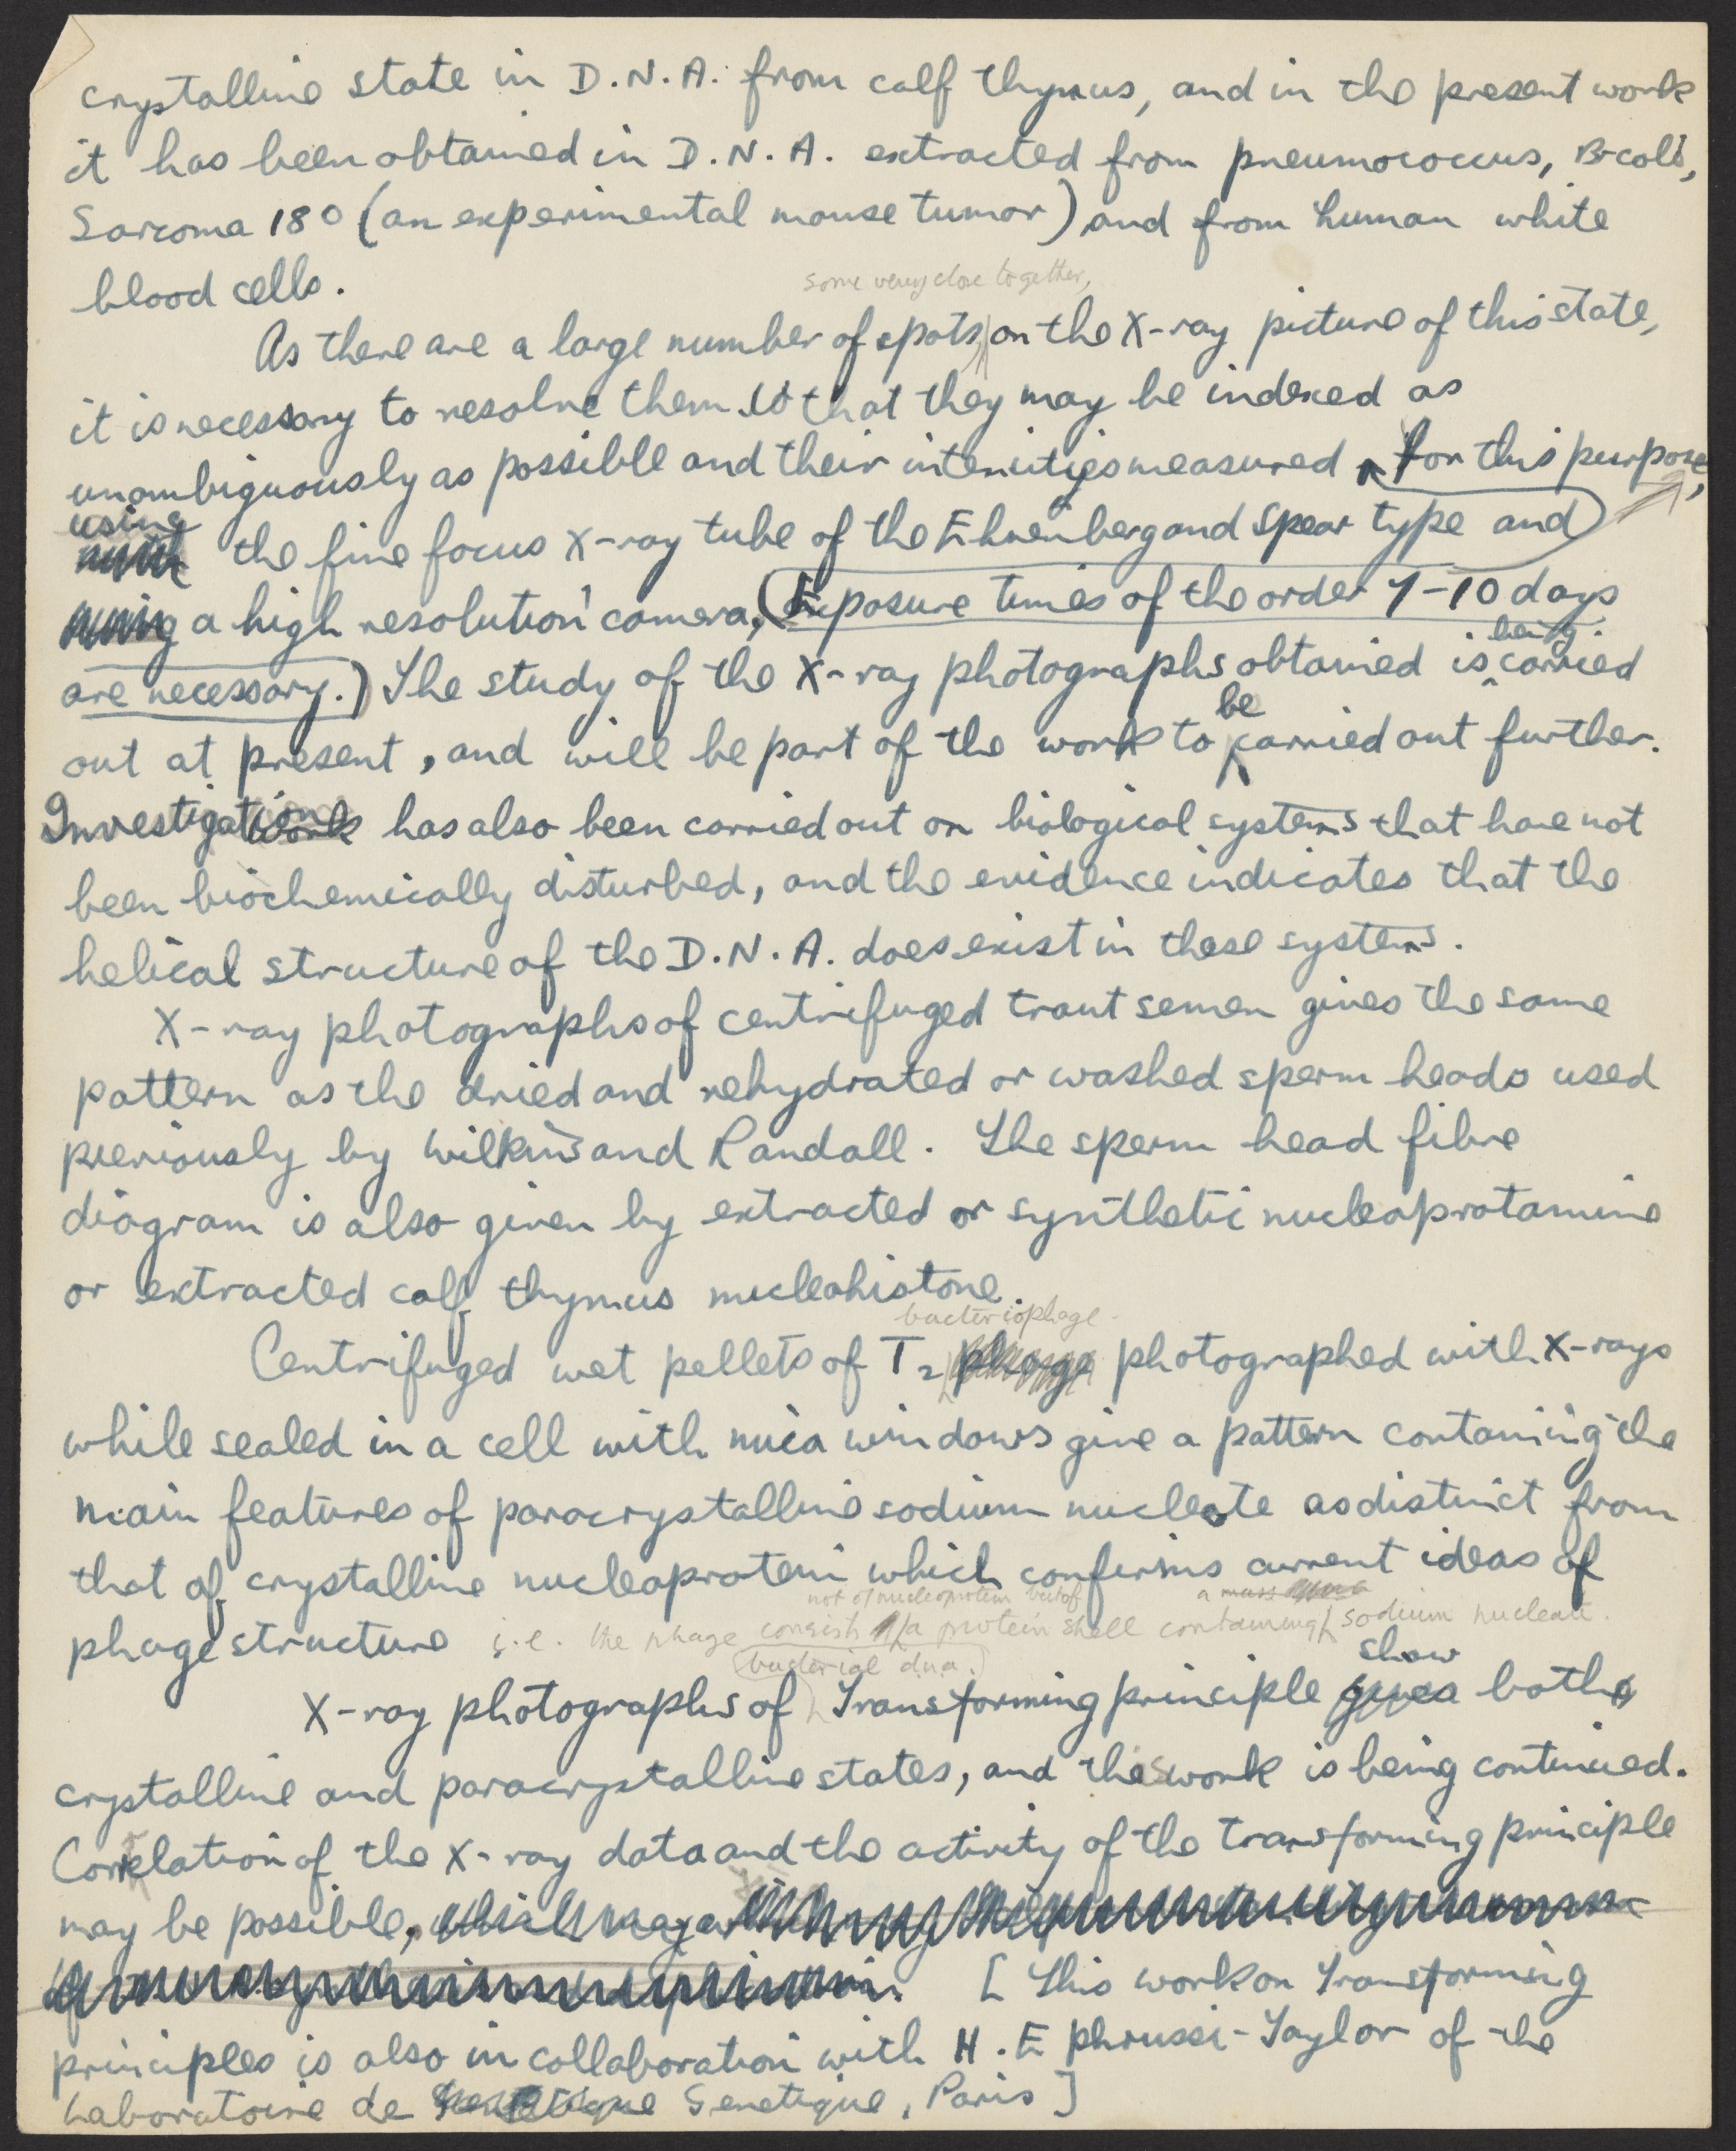 crystalline state in D.N.A. from calf thymus, and in the present work
it has been obtained in D.N.A. extracted from pneumococcus, B-coli,
Sarcoma 180 (an experimental mouse tumor) and from human white
blood cells.
some very close together,
As there are a large number of spots, on the X-ray picture of this state,
it is necessary to resolve them so that they may be indexed as
unambiguously as possible and their intensities measured for this purpose,
using
the fine focus X-ray tube of the Ehrenberg and Spear type and
using a high resolution camera, (Exposure times of the order 7-10 days
being
are necessary.) The study of the X-ray photographs obtained is carried
be
out at present, and will be part of the work to carried out further.
Investigation work has also been carried out on biological systems that have not
been biochemically disturbed, and the evidence indicates that the
helical structure of the D.N.A. does exist in these systems.
X-ray photographs of centrifuged trout semen gives the same
pattern as the dried and rehydrated or washed sperm heads used
previously by Wilkins and Randall. The sperm head fibre
diagram is also given by extracted or synthetic nucleoprotamine
or extracted calf thymus nucleohistone.
bacteriophage
Centrifuged wet pellets of T2 phage photographed with X-rays
while sealed in a cell with mica windows give a pattern containing the
main features of paracrystalline sodium nucleate as distinct from
that of crystalline nucleoprotein which confirms current ideas of
not of nucleoprotein but of a mass
phage structure i.e. the phage consists of a protein shell containing sodium nucleate.
bacterial dna.
show
X-ray photographs of Transforming principle gives both
crystalline and paracrystalline states, and this work is being continued.
Correlation of the X-ray data and the activity of the transforming principle
may be possible, which may
[This work on Transforming
principles is also in collaboration with H. Ephrussi-Taylor of the
Laboratoire de Genetique, Paris]